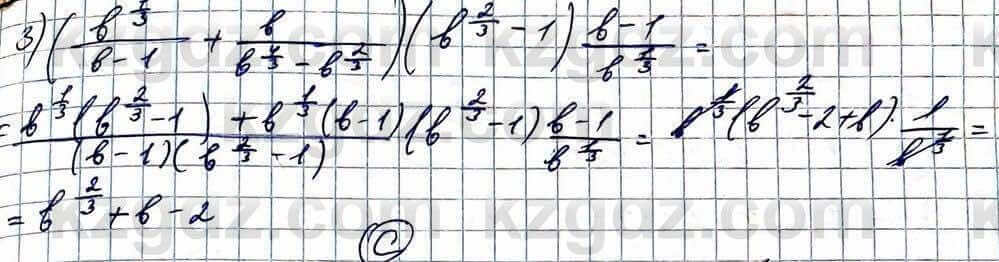 3) (b^{1/3}/(b-1) + b/(b^{4/3} - b^{2/3}))(b^{2/3} - 1) (b-1)/b^{1/3} =
= (b^{1/3}(b^{2/3} - 1) + b^{1/3}(b-1))/((b-1)(b^{2/3} - 1)) (b^{2/3} - 1) (b-1)/b^{1/3} = b^{1/3}(b^{2/3} - 2 + b) · 1/b^{1/3} =
= b^{2/3} + b - 2
C
kzgdz.com